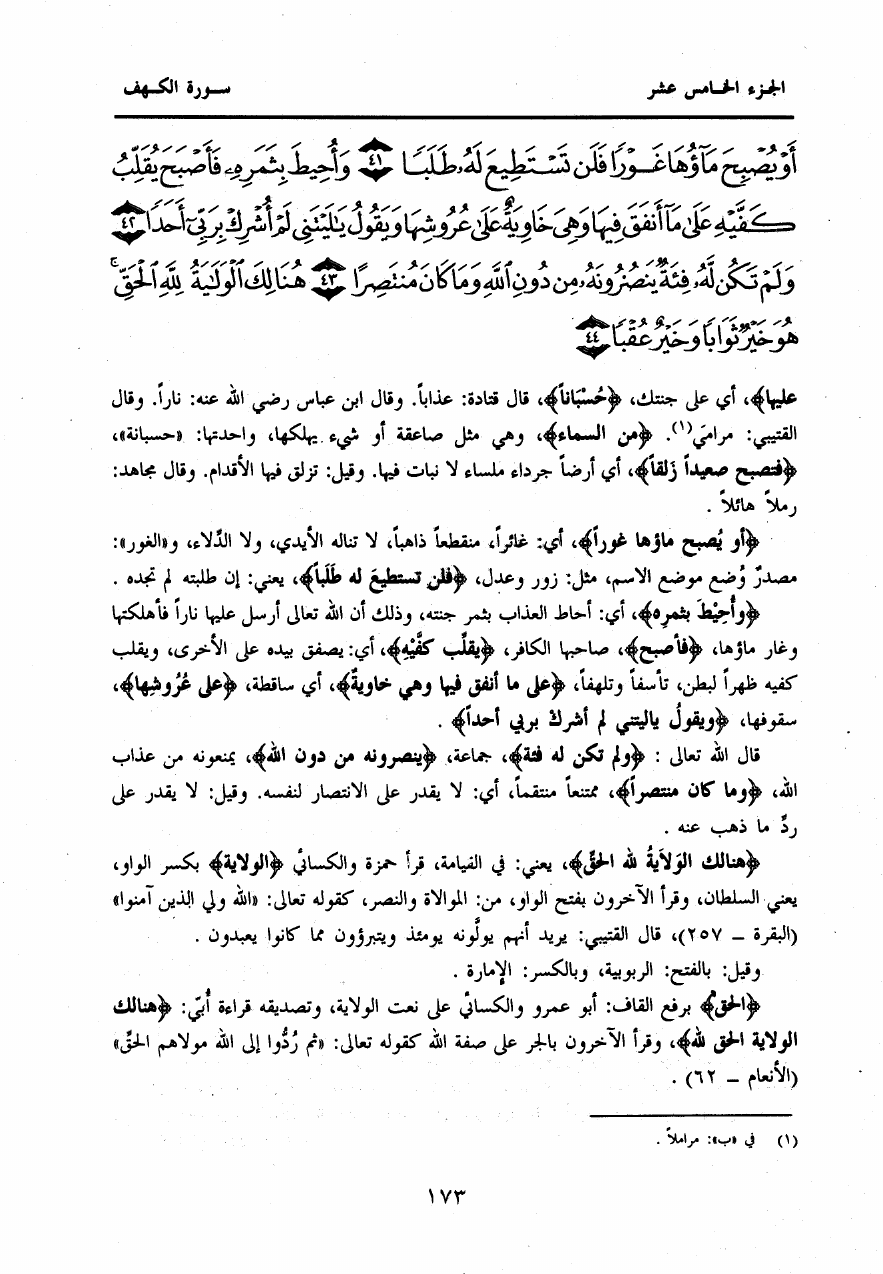 الجزء الخامس عشر
سورة الكهف
أَوْ يُصْبِحَ مَآؤُهَا غَوْرًا فَلَن تَسْتَطِيعَ لَهُۥ طَلَبًا ٤١ وَأُحِيطَ بِثَمَرِهِۦ فَأَصْبَحَ يُقَلِّبُ
كَفَّيْهِ عَلَىٰ مَآ أَنفَقَ فِيهَا وَهِىَ خَاوِيَةٌ عَلَىٰ عُرُوشِهَا وَيَقُولُ يَٰلَيْتَنِى لَمْ أُشْرِكْ بِرَبِّىٓ أَحَدًا ٤٢
وَلَمْ تَكُن لَّهُۥ فِئَةٌ يَنصُرُونَهُۥ مِن دُونِ ٱللَّهِ وَمَا كَانَ مُنتَصِرًا ٤٣ هُنَالِكَ ٱلْوَلَٰيَةُ لِلَّهِ ٱلْحَقِّ ۚ
هُوَ خَيْرٌ ثَوَابًا وَخَيْرٌ عُقْبًا ٤٤
عليها﴾، أي على جنتك، ﴿حُسْبَاناً﴾، قال قتادة: عذاباً. وقال ابن عباس رضي الله عنه: ناراً. وقال
القتيبي: مراميَ(١). ﴿من السماء﴾، وهي مثل صاعقة أو شيء يهلكها، واحدتها: «حسبانة»،
﴿فتصبح صعيداً زلقاً﴾، أي أرضاً جرداء ملساء لا نبات فيها. وقيل: تزلق فيها الأقدام. وقال مجاهد:
رملاً هائلاً .
﴿أو يُصبح ماؤها غوراً﴾، أي: غائراً، منقطعاً ذاهباً، لا تناله الأيدي، ولا الدِّلاء، و«الغور»:
مصدرٌ وُضع موضع الاسم، مثل: زور وعدل، ﴿فلن تستطيعَ له طَلَباً﴾، يعني: إن طلبته لم تجده .
﴿وأُحِيْطَ بثمره﴾، أي: أحاط العذاب بثمر جنته، وذلك أن الله تعالى أرسل عليها ناراً فأهلكتها
وغار ماؤها، ﴿فأصبح﴾، صاحبها الكافر، ﴿يقلِّب كفَّيْهِ﴾، أي: يصفق بيده على الأخرى، ويقلب
كفيه ظهراً لبطن، تأسفاً وتلهفاً، ﴿على ما أنفق فيها وهي خاويةٌ﴾، أي ساقطة، ﴿على عُرُوشِها﴾،
سقوفها، ﴿ويقولُ ياليتني لم أشرك بربي أحداً﴾ .
قال الله تعالى : ﴿ولم تكن له فئة﴾، جماعة، ﴿ينصرونه من دون الله﴾، يمنعونه من عذاب
الله، ﴿وما كان منتصراً﴾، ممتنعاً منتقماً، أي: لا يقدر على الانتصار لنفسه. وقيل: لا يقدر على
ردِّ ما ذهب عنه .
﴿هنالك الوَلاَيةُ لله الحقِّ﴾، يعني: في القيامة، قرأ حمزة والكسائي ﴿الولاية﴾ بكسر الواو،
يعني السلطان، وقرأ الآخرون بفتح الواو، من: الموالاة والنصر، كقوله تعالى: «الله ولي الذين آمنوا»
(البقرة ــ ٢٥٧)، قال القتيبي: يريد أنهم يولُّونه يومئذ ويتبرؤون مما كانوا يعبدون .
وقيل: بالفتح: الربوبية، وبالكسر: الإمارة .
﴿الحقُ﴾ برفع القاف: أبو عمرو والكسائي على نعت الولاية، وتصديقه قراءة أُبيّ: ﴿هنالك
الولاية الحق لله﴾، وقرأ الآخرون بالجر على صفة الله كقوله تعالى: «ثم رُدُّوا إلى الله مولاهم الحقّ»
(الأنعام ــ ٦٢) .
(١) في «ب»: مراملاً .
١٧٣